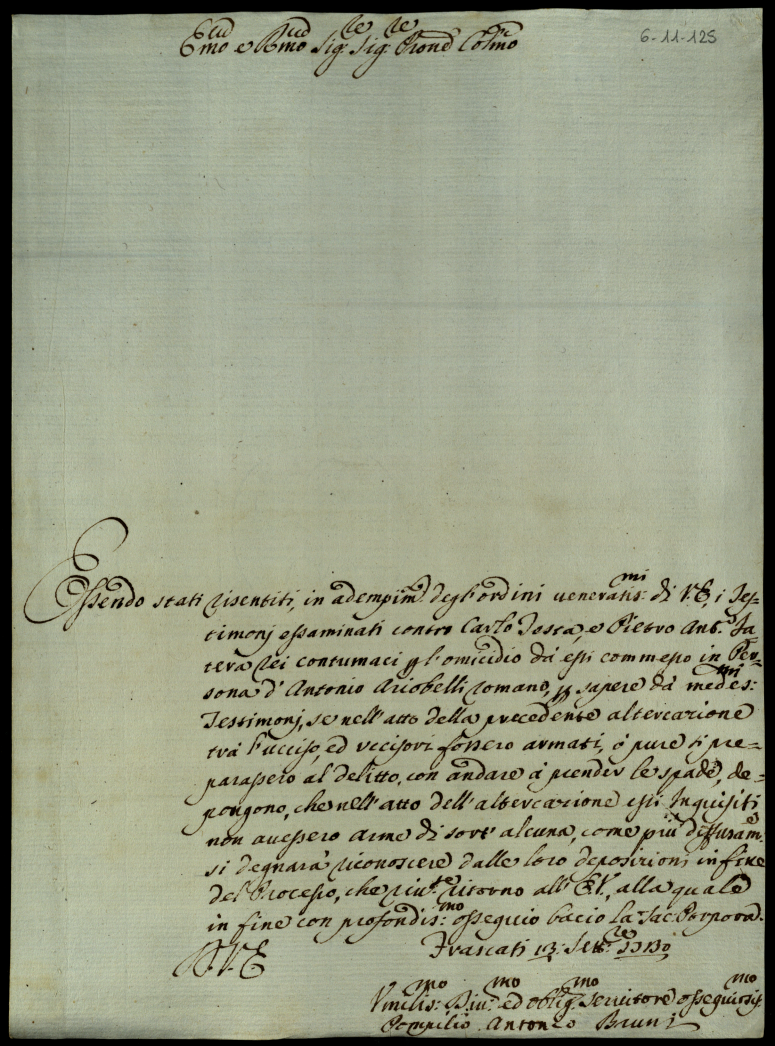 6-11-125
Emo e Rmo Sig.re Sig.re Prone Colmo
Essendo stati risentiti, in adempim.to degl'ordini veneratis:mi di V.E, i Tes-
timonj essaminati contro Carlo Testa, e Pietro Ant.o Fa-
tera rei contumaci p l'omicidio dà essi commesso in Per-
sona d'Antonio Aricobelli romano, p sapere dà medes:mi
Testimonj, se nell'atto della precedente altercazione
trà l'ucciso, ed uccisori fossero armati, ò pure si pre-
parassero al delitto, con andare à prender le spade, de-
pongono, che nell'atto dell'altercazione essi Inquisiti
non avessero arme di sort'alcuna, come più diffusam.e
si degnarà riconoscere dalle loro deposizioni in fine
del Processo, che riv.te ritorno all'E.V., alla quale
in fine con profondis:mo ossequio bacio la Sac: Porpora.
D.V.E Frascati 13: Set.re
Vmilis:mo Div:mo ed oblig:mo Servitore ossequiosis:mo
Pompilio Antonio Bruni